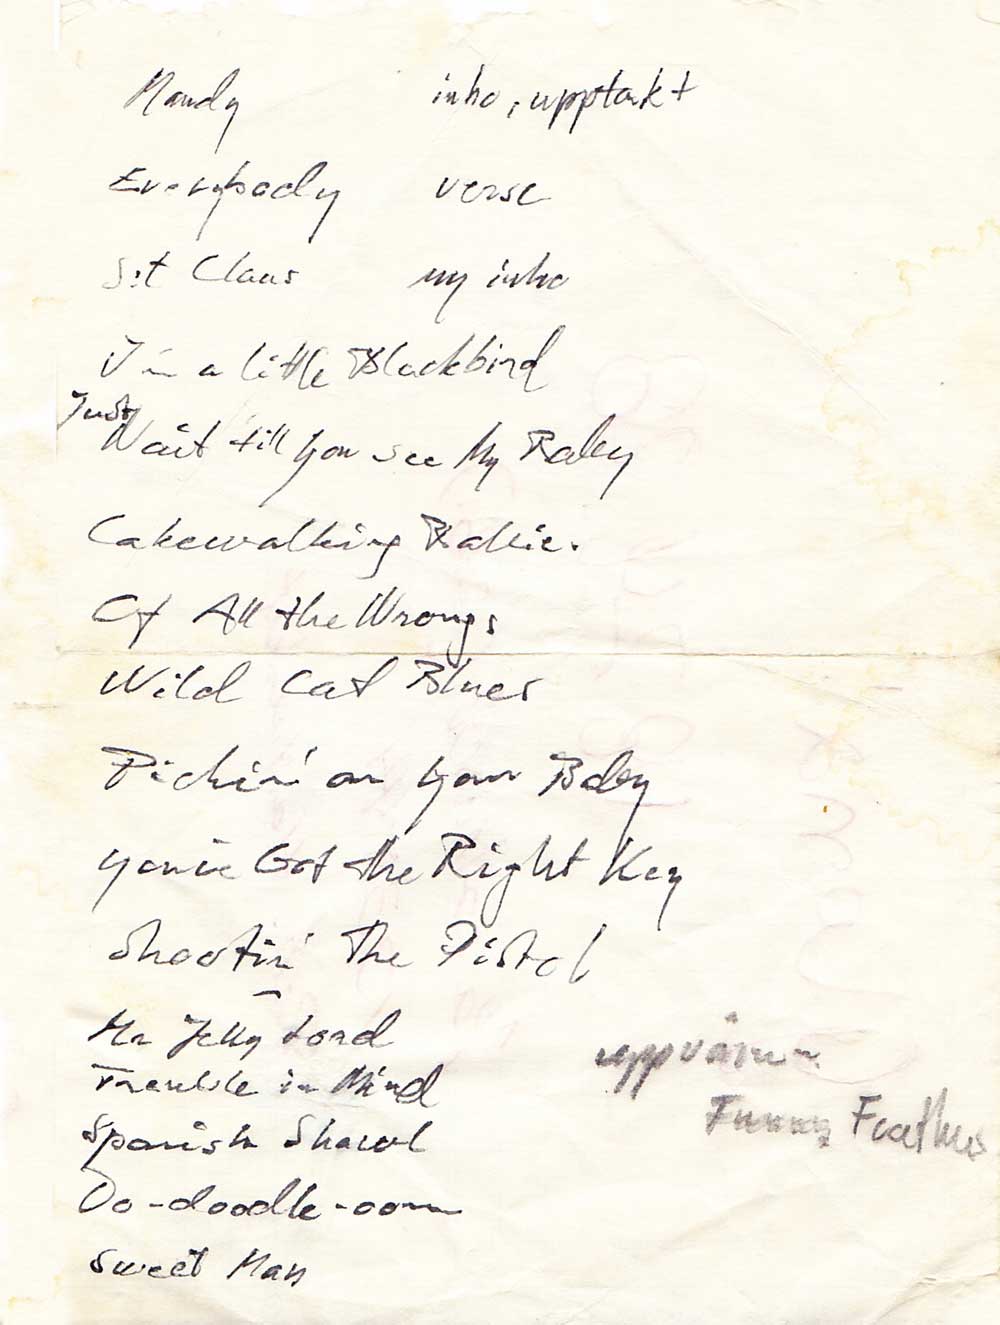 Mandy intro, upptakt
Everybody verse
S:t Claus ny intro
I'm a little Blackbird
Just
Wait till you see My Baby
Cakewalking Babie.
Of All the Wrongs
Wild Cat Blues
Pickin' on your Baby
you've Got the Right Key
Shootin' The Pistol
Mr Jelly Lord
Trouble in Mind
uppvärmn
Funny Feathers
Spanish Shawl
Do-doodle-oom
Sweet Man